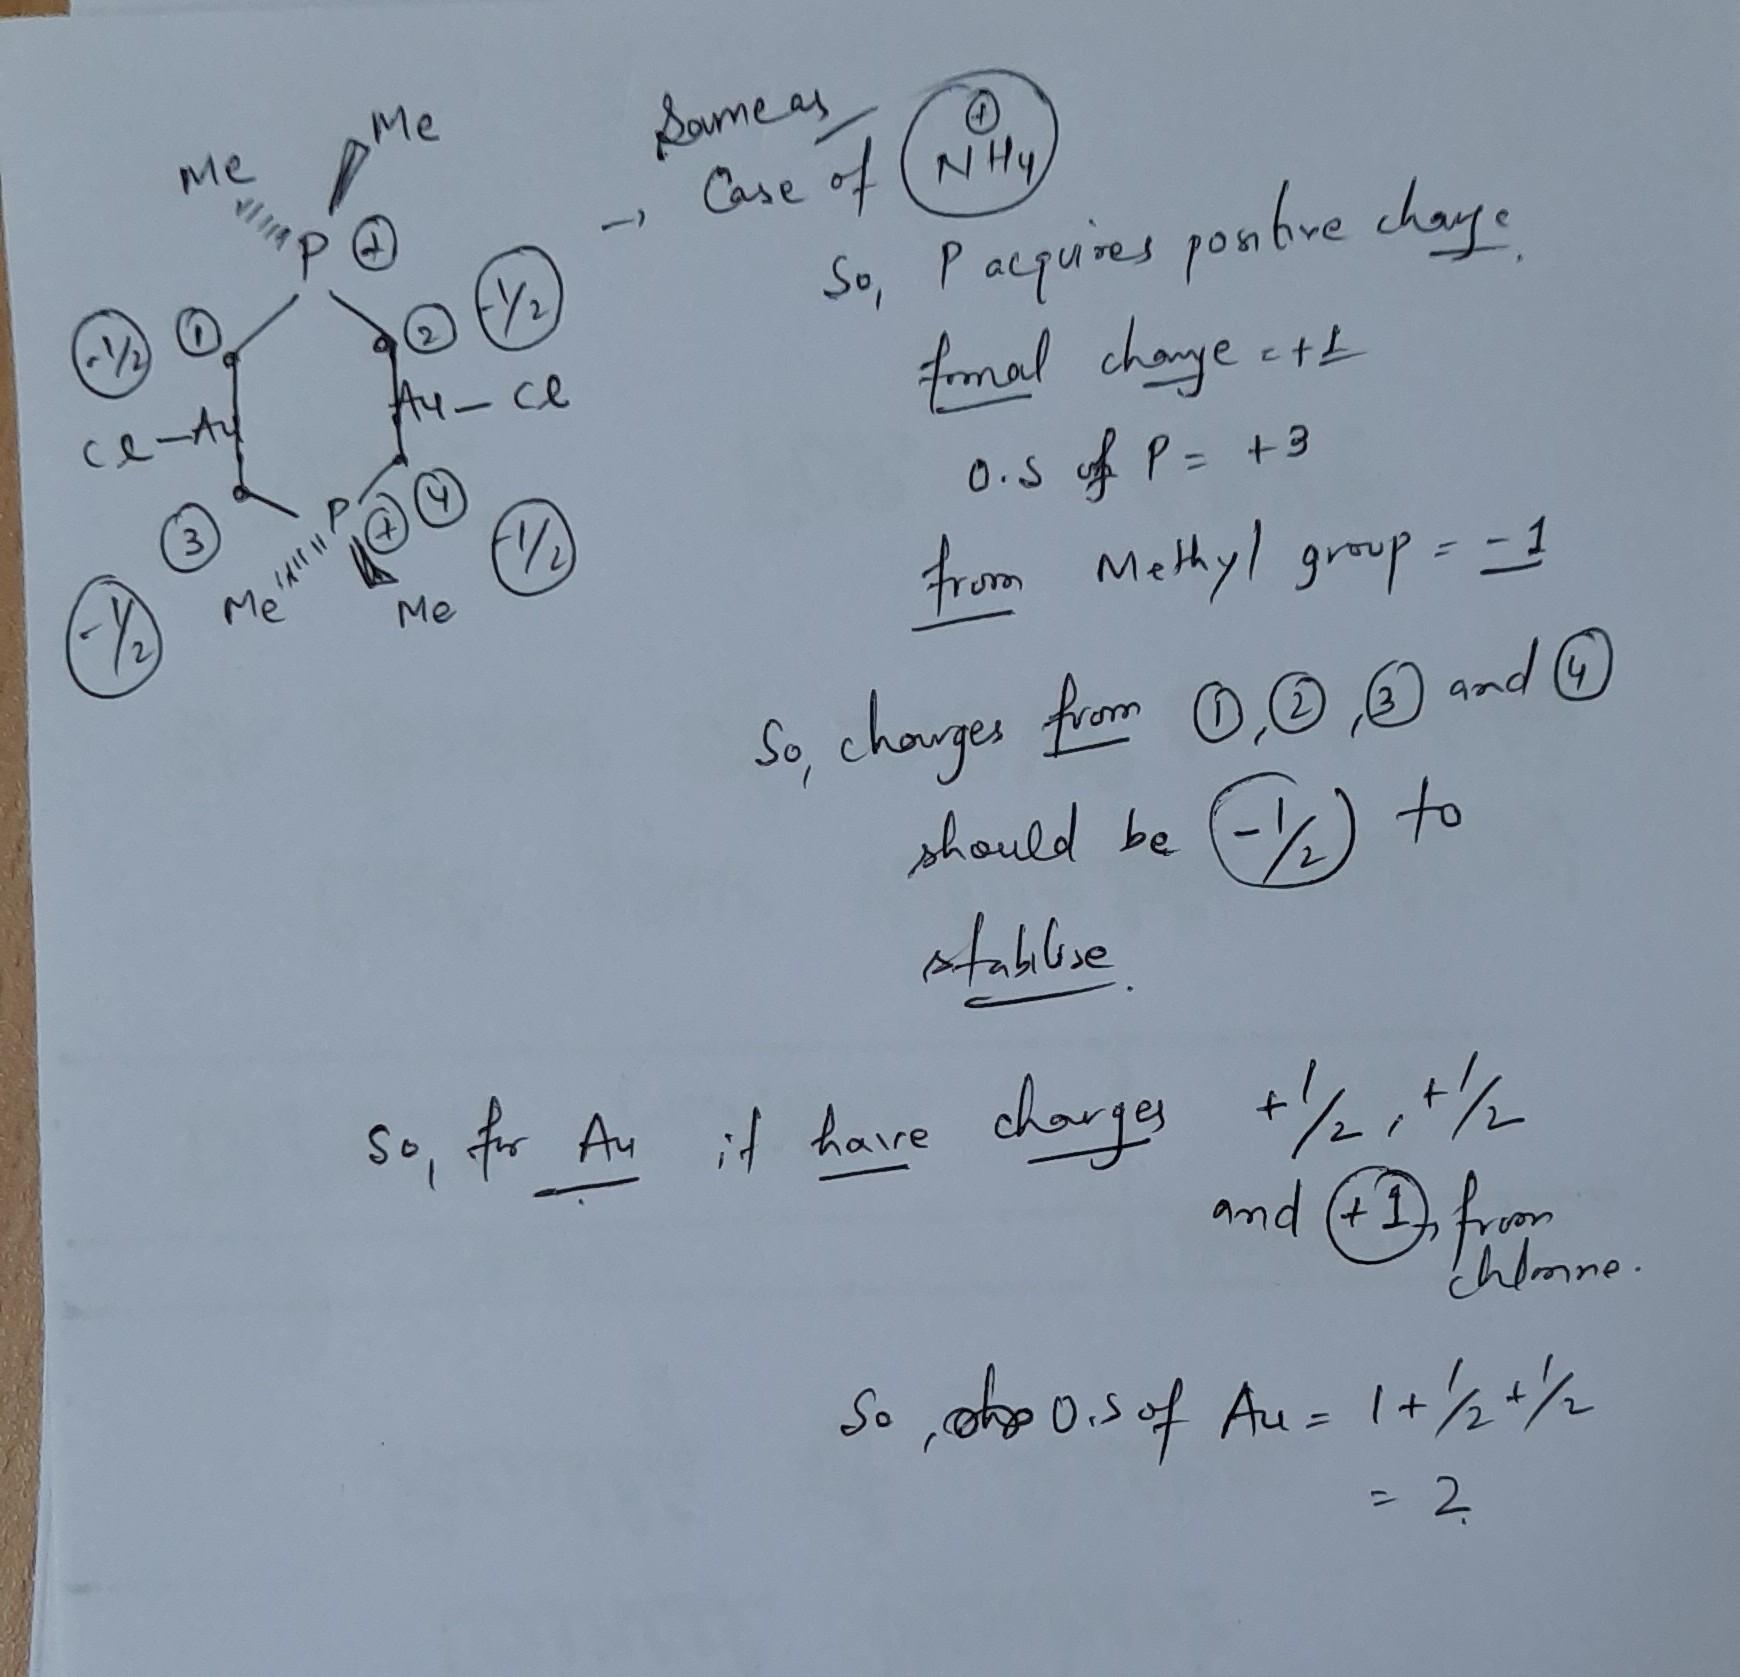 Me
Me
Same as
Case of
⊕
NH4
P ⊕
So, P acquires positive charge.
-1/2
①
②
-1/2
formal charge = +1
Cl-Au
Au-Cl
O.S of P = +3
③
P ⊕
④
-1/2
from Methyl group = -1
-1/2
Me
Me
So, charges from ①, ②, ③ and ④
should be -1/2 to
stabilise.
So, for Au it have charges +1/2, +1/2
and +1, from
chlorine.
So, O.S of Au = 1 + 1/2 + 1/2
= 2.